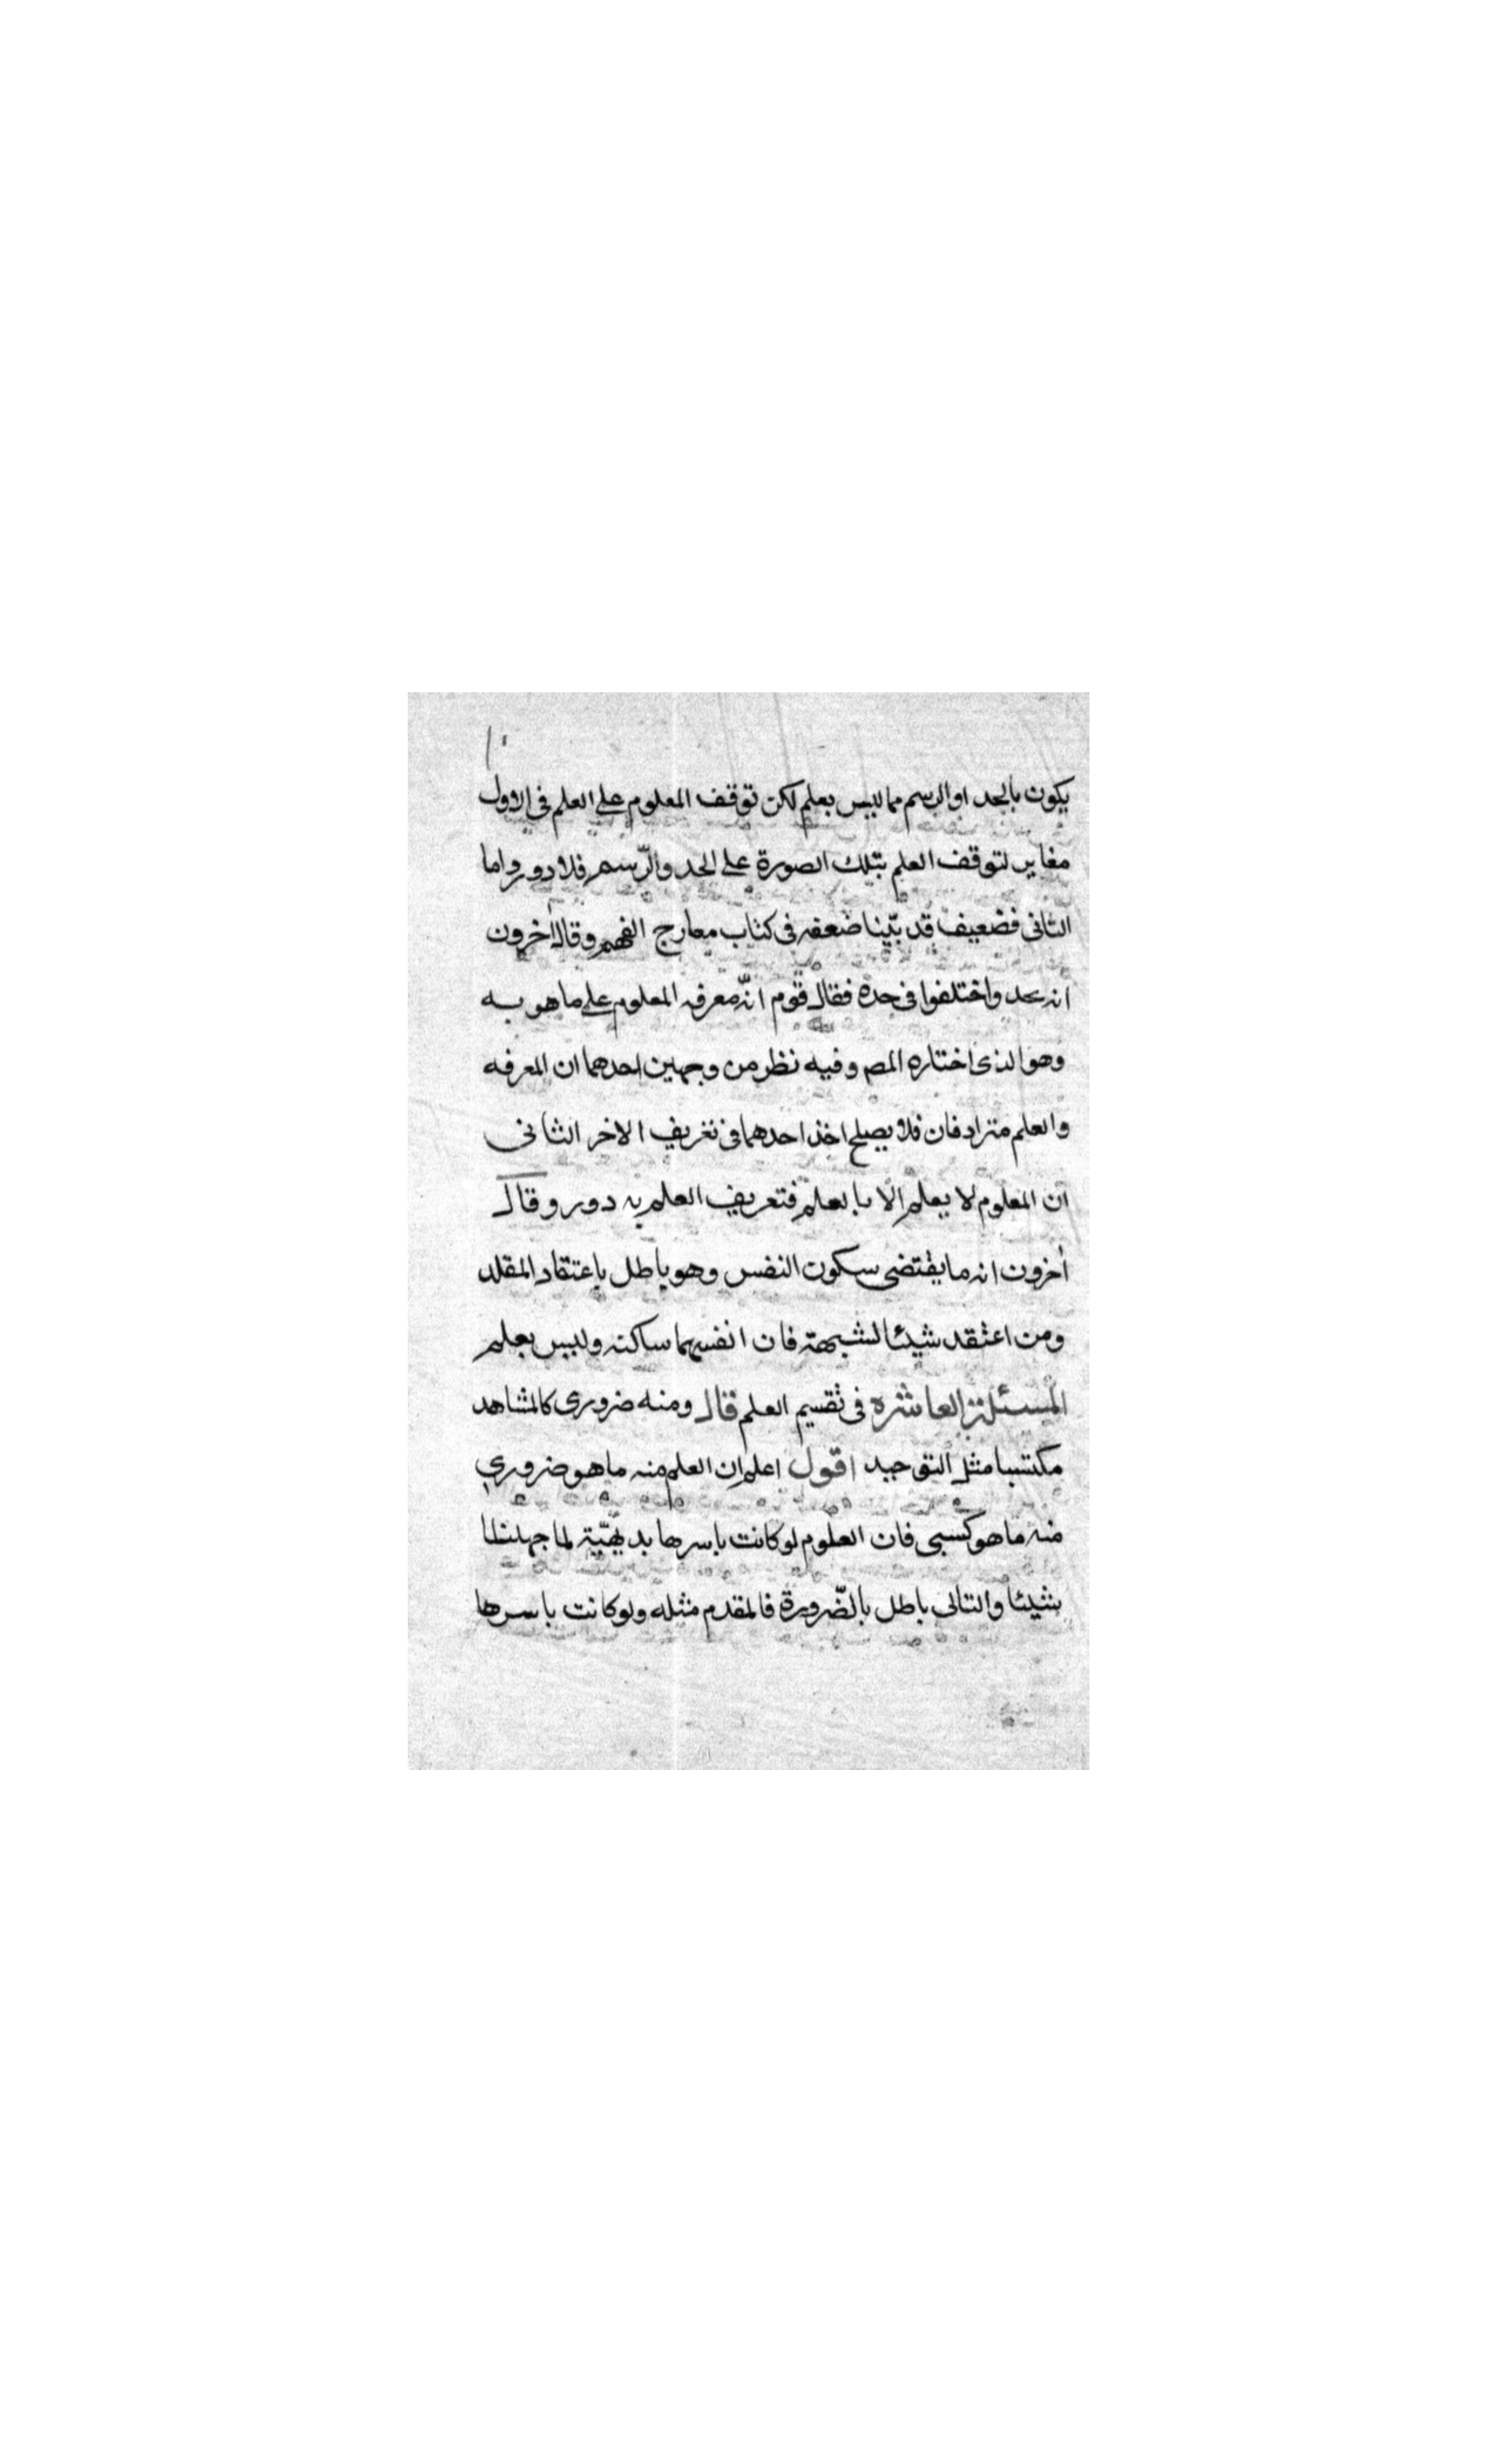 ١٠
يكون بالحد او الرسم مما ليس بعلم لكن توقف المعلوم على العلم فى الاول
مغاير لتوقف العلم بتلك الصورة على الحد والرّسم فلا دور واما
الثانى فضعيف قد بيّنا ضعفه فى كتاب معارج الفهم وقال أخرون
انه يحد واختلفوا فى حده فقال قوم انّه معرفه المعلوم على ما هو به
وهو الذى اختاره المص وفيه نظر من وجهين احدهما ان المعرفه
والعلم مترادفان فلا يصلح اخذ احدهما فى تعريف الاخر الثانى
ان المعلوم لا يعلم الّا بالعلم فتعريف العلم به دور وقال
أخرون انه ما يقتضى سكون النفس وهو باطل باعتقاد المقلد
ومن اعتقد شيئا لشبهة فان انفسهما ساكنه وليس بعلم
المسئلة العاشره فى تقسيم العلم قال ومنه ضرورى كالمشاهد
مكتسبا مثل التوحيد اقول اعلم ان العلم منه ما هو ضرورى
منه ما هو كسبى فان العلوم لو كانت باسرها بديهيّة لما جهلنا
شيئا والتالى باطل بالضّرورة فالمقدم مثله ولو كانت باسرها